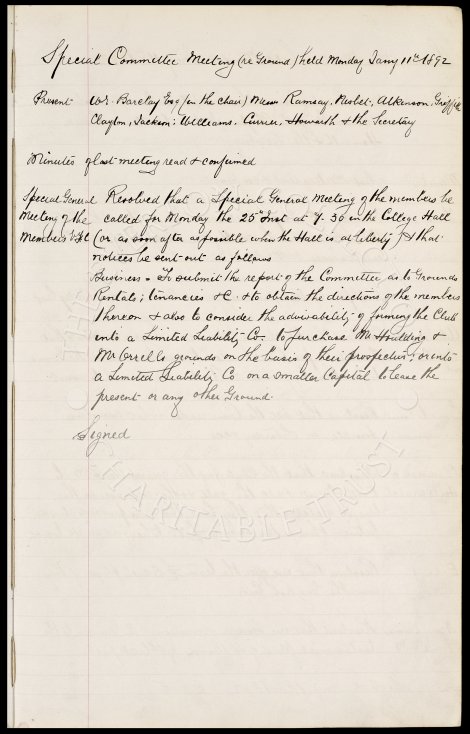 Special Committee Meeting (re Ground) held Monday Jany 11th 1892
Present W. Barclay Esq (in the chair) Messrs Ramsay, Nisbet, Atkinson, Griffiths
Clayton, Jackson, Williams, Currier, Howarth & the Secretary
Minutes of last meeting read & confirmed
Special General Resolved that a Special General Meeting of the members be
Meeting of the called for Monday the 25th Inst at 7.30 in the College Hall
Members (or as soon after as possible when the Hall is at liberty) & that
notices be sent out as follows
Business - To submit the report of the Committee, as to Grounds
Rentals, tenancies &c. & to obtain the directions of the members
thereon & also to consider the advisability of forming the Club
into a Limited Liability Co. to purchase Mr Houlding &
Mr Orrells grounds on the basis of their prospectus, or into
a Limited Liability Co on a smaller Capital to lease the
present or any other Ground.
Signed
CHARITABLE TRUST